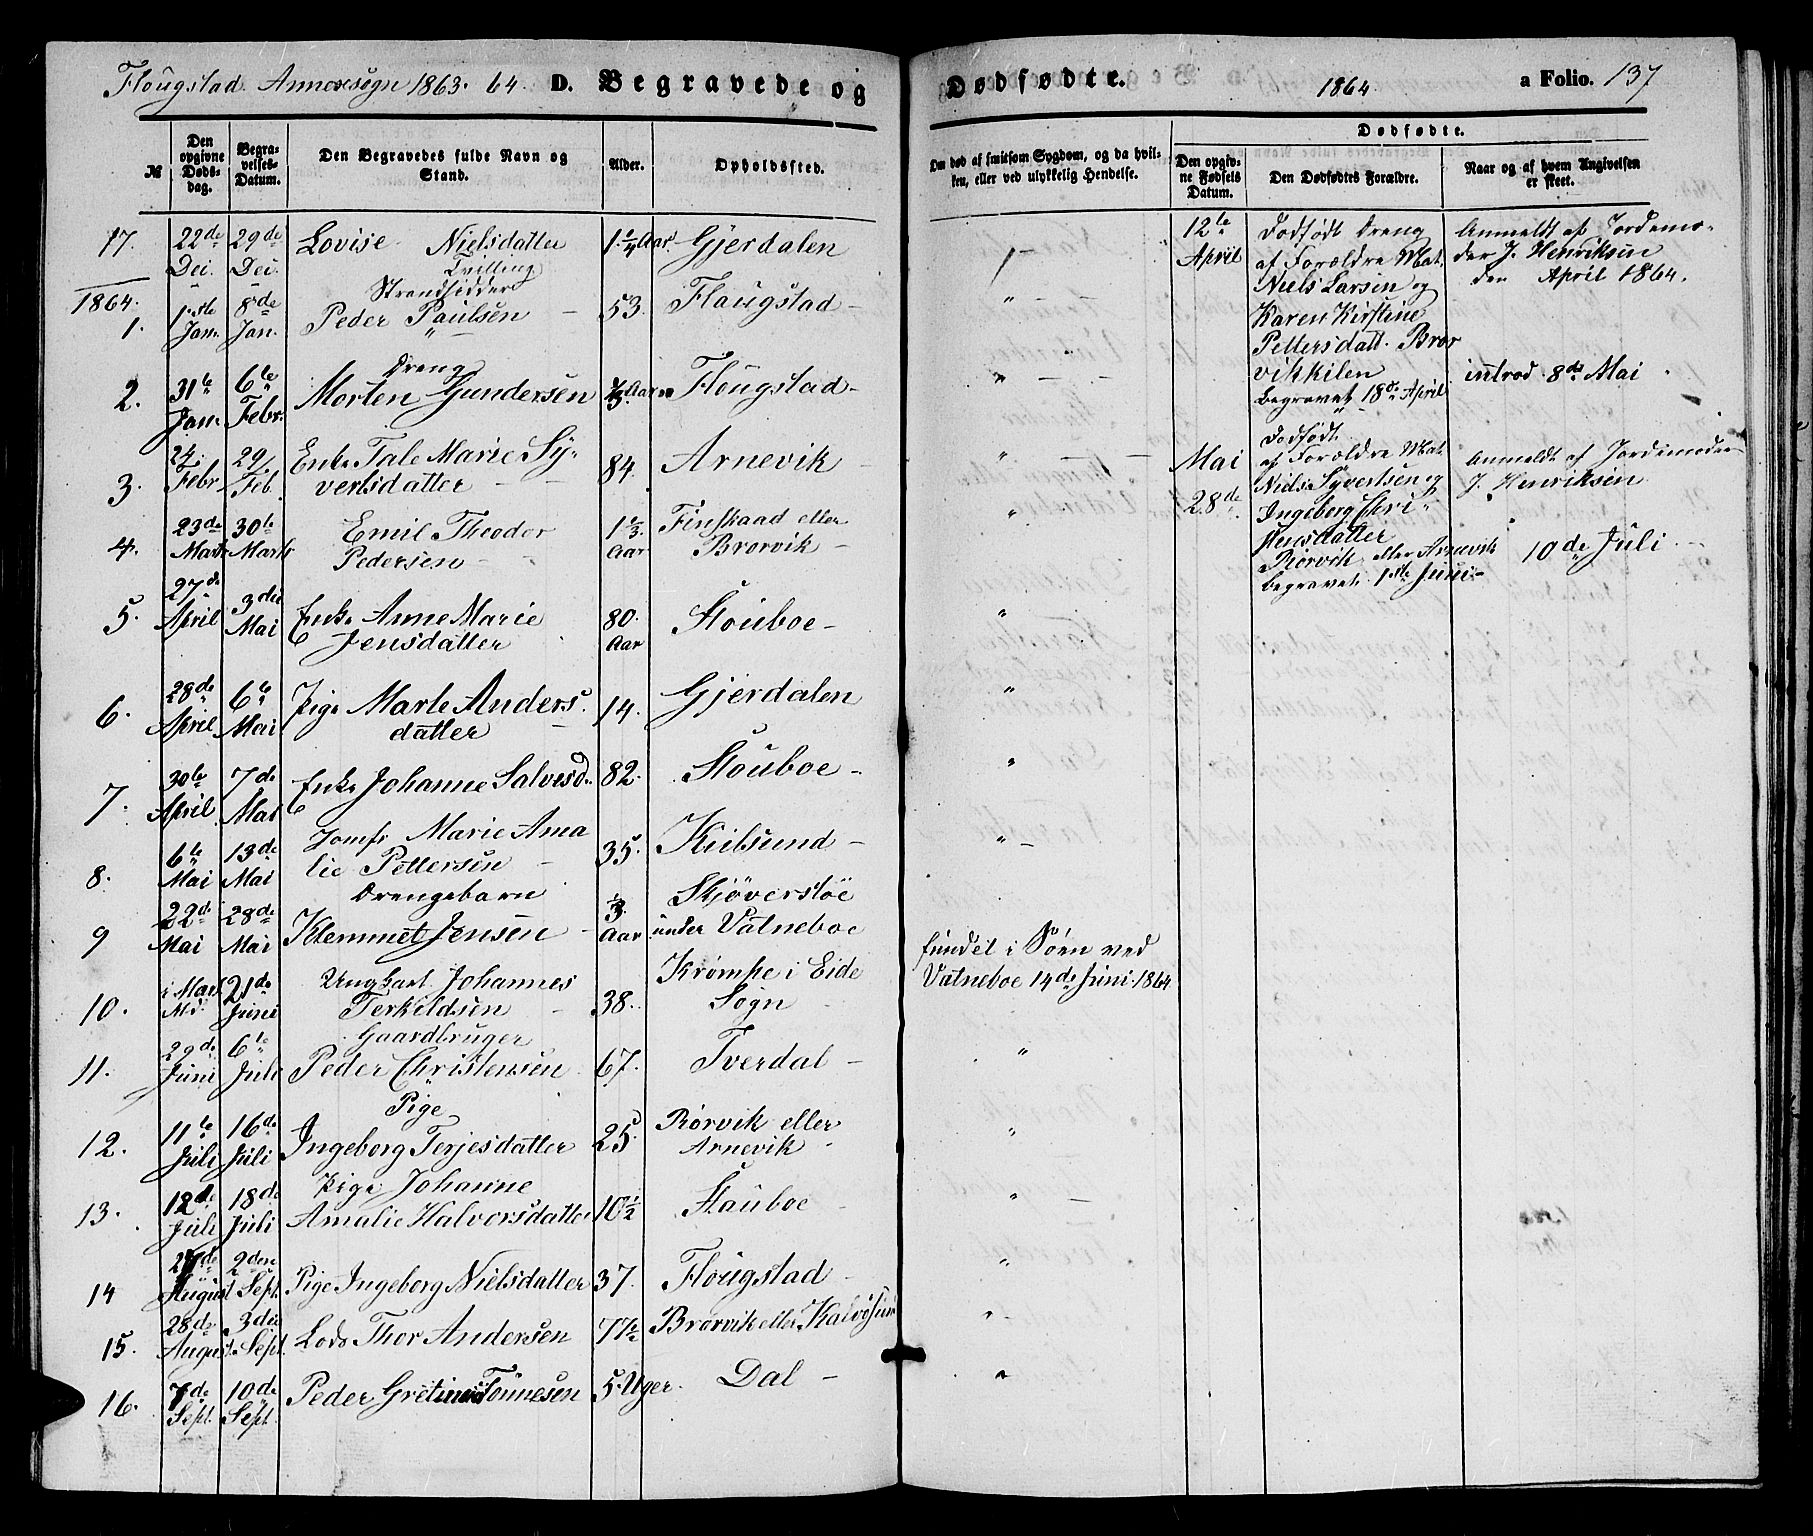 Flougstad Annexsogn 1863. 64. D. Begravede og
Dødfødte. 1864 a Folio. 137
№ Den opgivne Dødsdag. Begravelses-Datum. Den Begravedes fulde Navn og Stand. Alder. Opholdssted.
Om død af smitsom Sygdom, og da hvilken, eller ved ulykkelig Hendelse.
Dødfødte.
Den opgivne Fødsels Datum. Den Dødfødtes Forældre. Naar og af hvem Angivelsen er skeet.
17. 22de Dei. 29de Dei. Lovise Nielsdatter 1 1/4 Aar Gjerdalen
Tvilling
1864.
Strandsidder
1. 1ste Jan. 8de Jan. Peder Paulsen 53. Flaugstad
Dreng
2. 31te Jan. 6te Febr. Morten Gundersen Aar Flougstad
3. 24. Febr. 29/ Feb. Enke Tale Marie Sy-
vertsdatter 84. Arnevik
4. 23de Marts 30te Marts Emil Theodor
Pedersen 1 1/3 Aar Finskaad eller
Brorvik
5. 27de April 3die Mai Enke Anne Marie
Jensdatter 80. Aar Stouboe
6. 28de April 6te Mai Pige Marte Anders
datter 14. Gjerdalen
7. 30te April 7de Mai Enke Johanne Salvesd. 82. Stouboe
8. 6te Mai 13de Mai Jomfr Marie Ama
lie Pettersen 35. Kiilsund
Drengebarn
9 22de Mai 28de Mai Klemmet Jensen 1/3 Aar Skjöverstöe
under Vatneboe
10. i Mart. Md. 21de Juni Ungkarl Johannes
Terkildsen 38. Krömke i Eide
Sogn
fundet i Söen ved
Vatneboe 14de Juni 1864
Gaardbruger
11. 29de Juni 6te Juli Peder Christensen 67. Tverdal
Pige
12. 11te Juli 16de Juli Ingeborg Terjesdatter 25 Rörvik eller
Arnevik
13. 12de Juli 18de Juli Pige Johanne
Amalie Halvorsdatter 10 1/2 Stauboe
14 27de August 2den Sept. Pige Ingeborg Nielsdatter 37. Flougstad
15. 28de August 3die Sept. Lods Thor Andersen 77 1/2 Brorvik eller Kalvösun
16. 7de Sept. 10de Sept. Peder Tönnesen 5. Uger. Dal
12te April
Dödfödt Dreng
af Forældre Mat.
Niels Larsen og
Karen Kirstine
Pettersdatt. Bror
vikkilen
begravet 18de April
Anmeldt af Jordemo-
der J. Henriksen
den April 1864.
introd. 8de Mai
Mai 28de
Dödfödt
af Forældre Mat.
Niels Syvertsen og
Ingeborg Chri
stensdatter
Rörvik eller Arnevik
begravet 1ste Juni
Anmeldt af Jordemoder
J. Henriksen
10de Juli